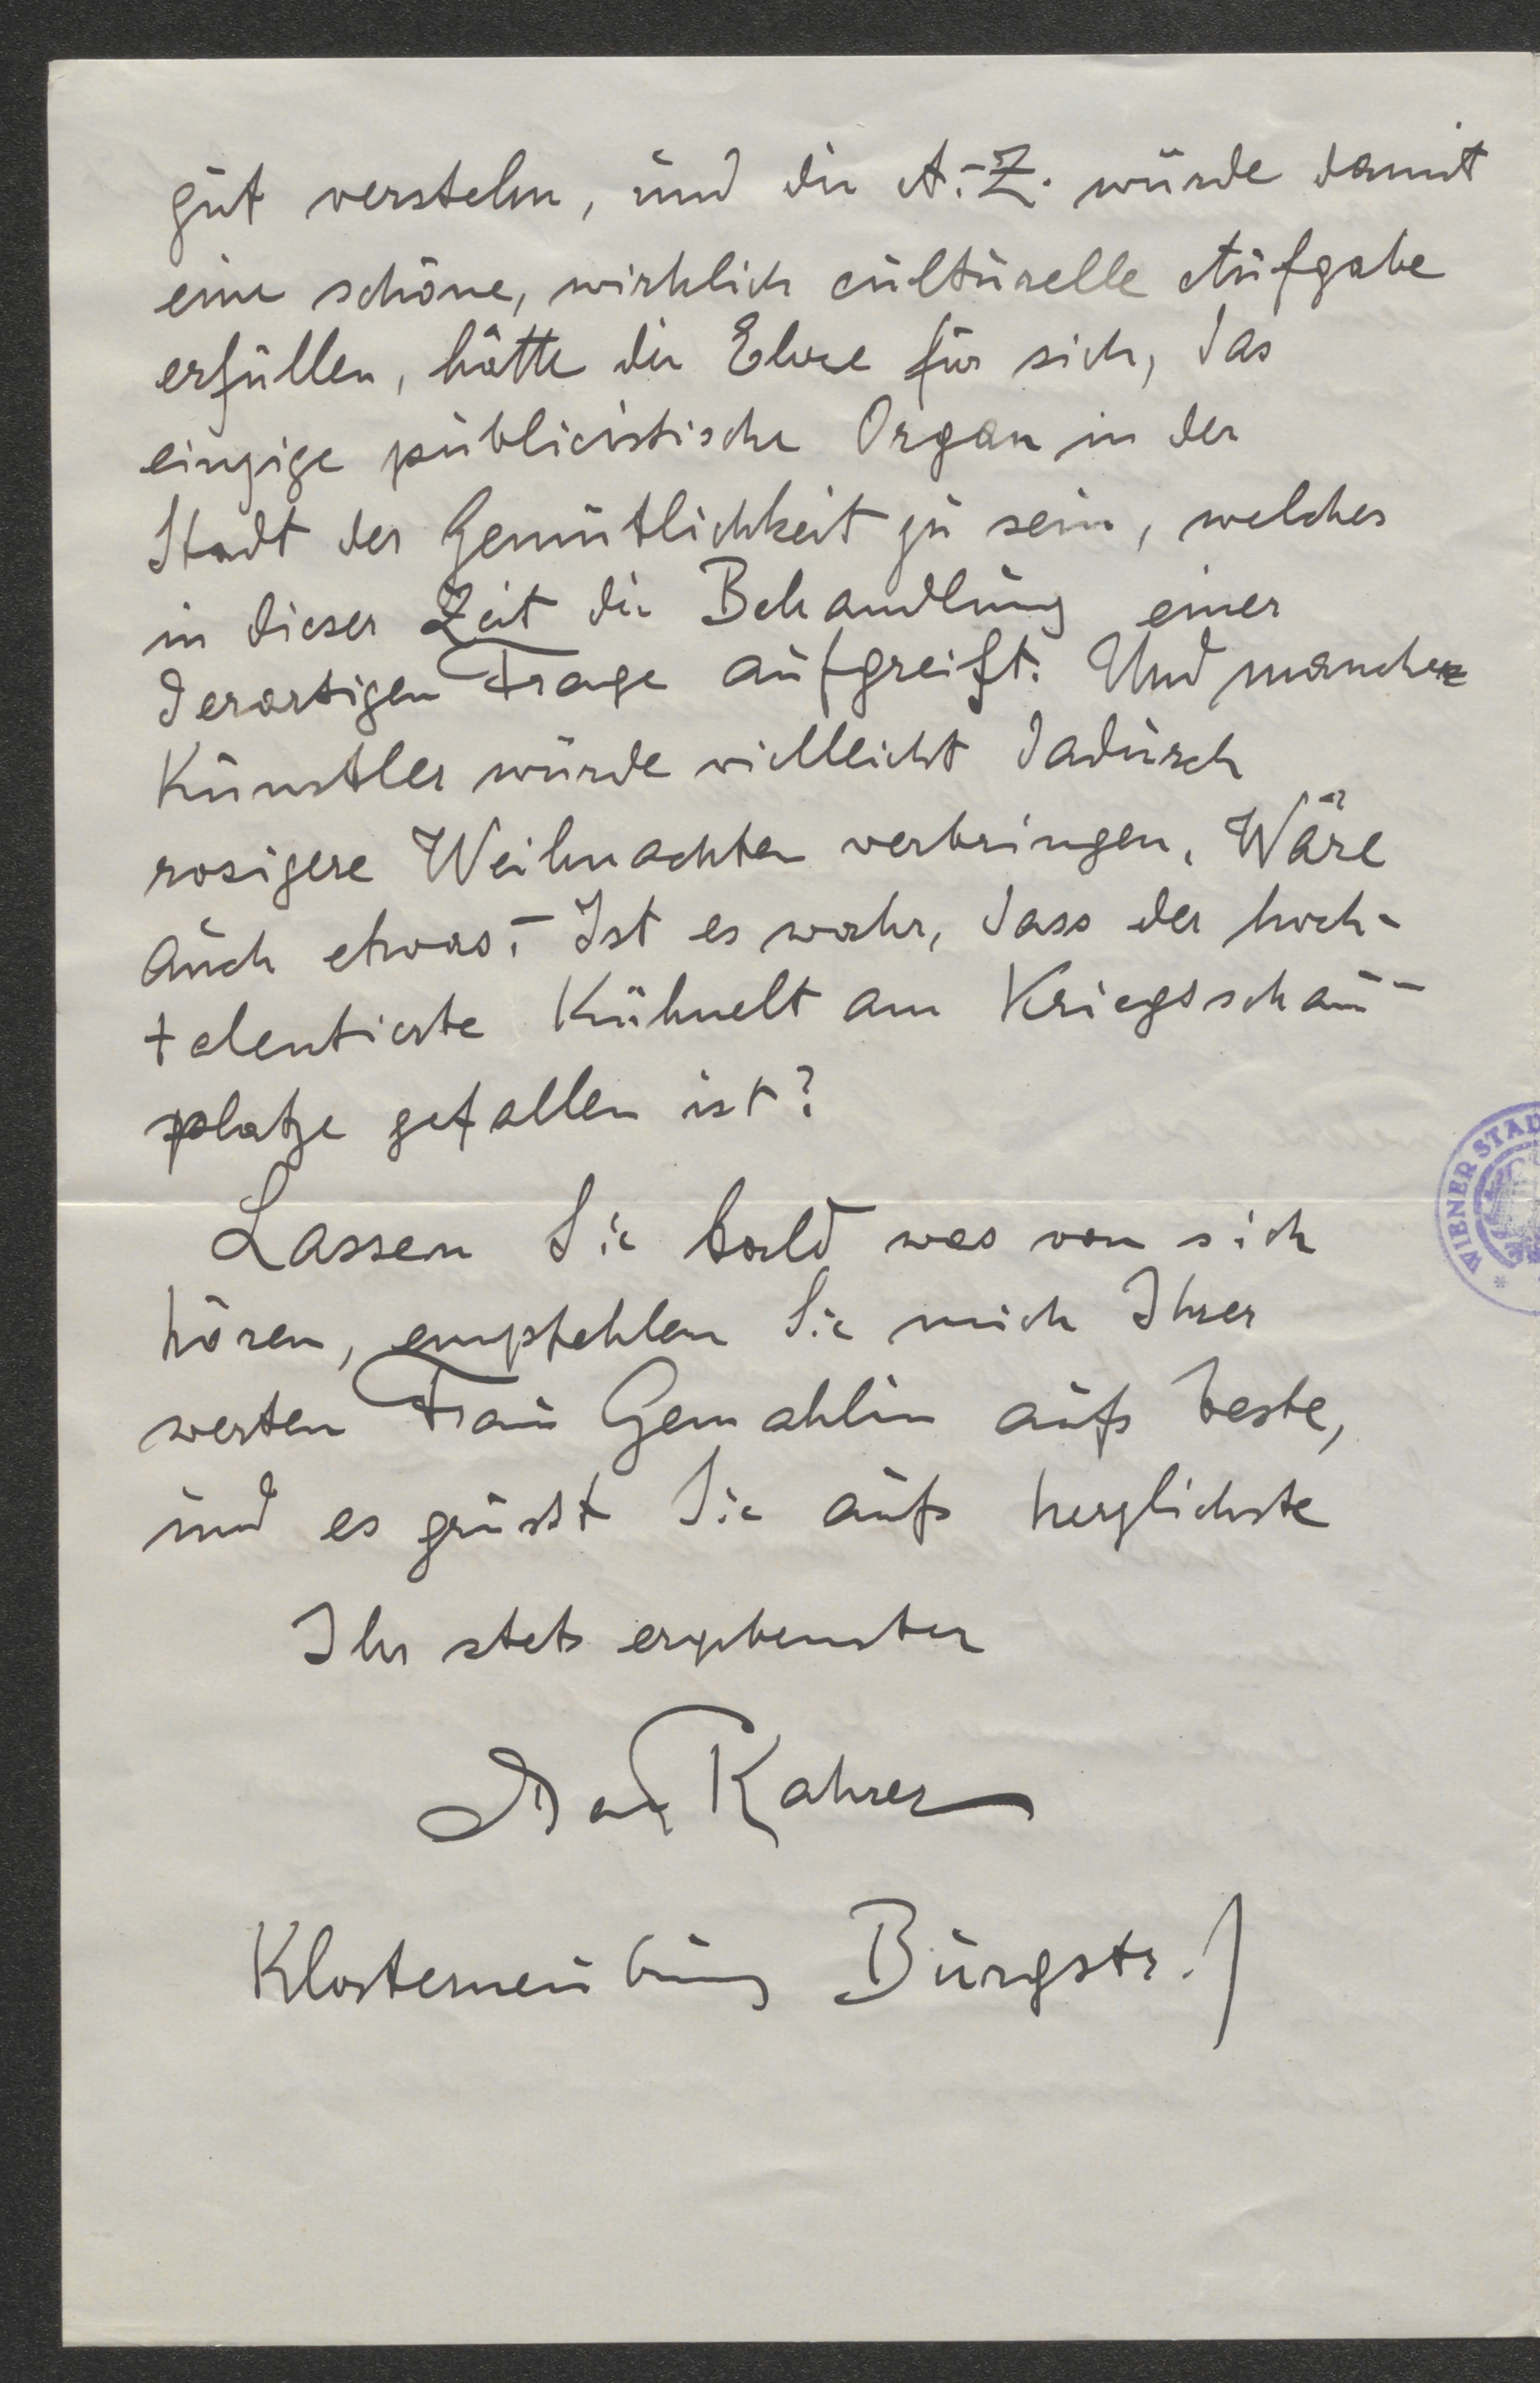 gut verstehn, und die A.-Z. würde damit
eine schöne, wirklich culturelle Aufgabe
erfüllen, hätte die Ehre für sich, das
einzige publicistische Organ in der
Stadt der Gemütlichkeit zu sein, welches
in dieser Zeit die Behandlung einer
derartigen Frage aufgreift. Und mancher
Künstler würde vielleicht dadurch
rosigere Weihnachten verbringen. Wäre
auch etwas.- Ist es wahr, dass der hoch-
talentierte Kühnelt am Kriegsschau-
platze gefallen ist?
Lassen Sie bald was von sich
hören, empfehlen Sie mich Ihrer
werten Frau Gemahlin aufs beste,
und es grüsst Sie aufs herzlichste
Ihr stets ergebenster
Max Kahrer
Klosterneuburg Burgstr. 1
WIENER STAD